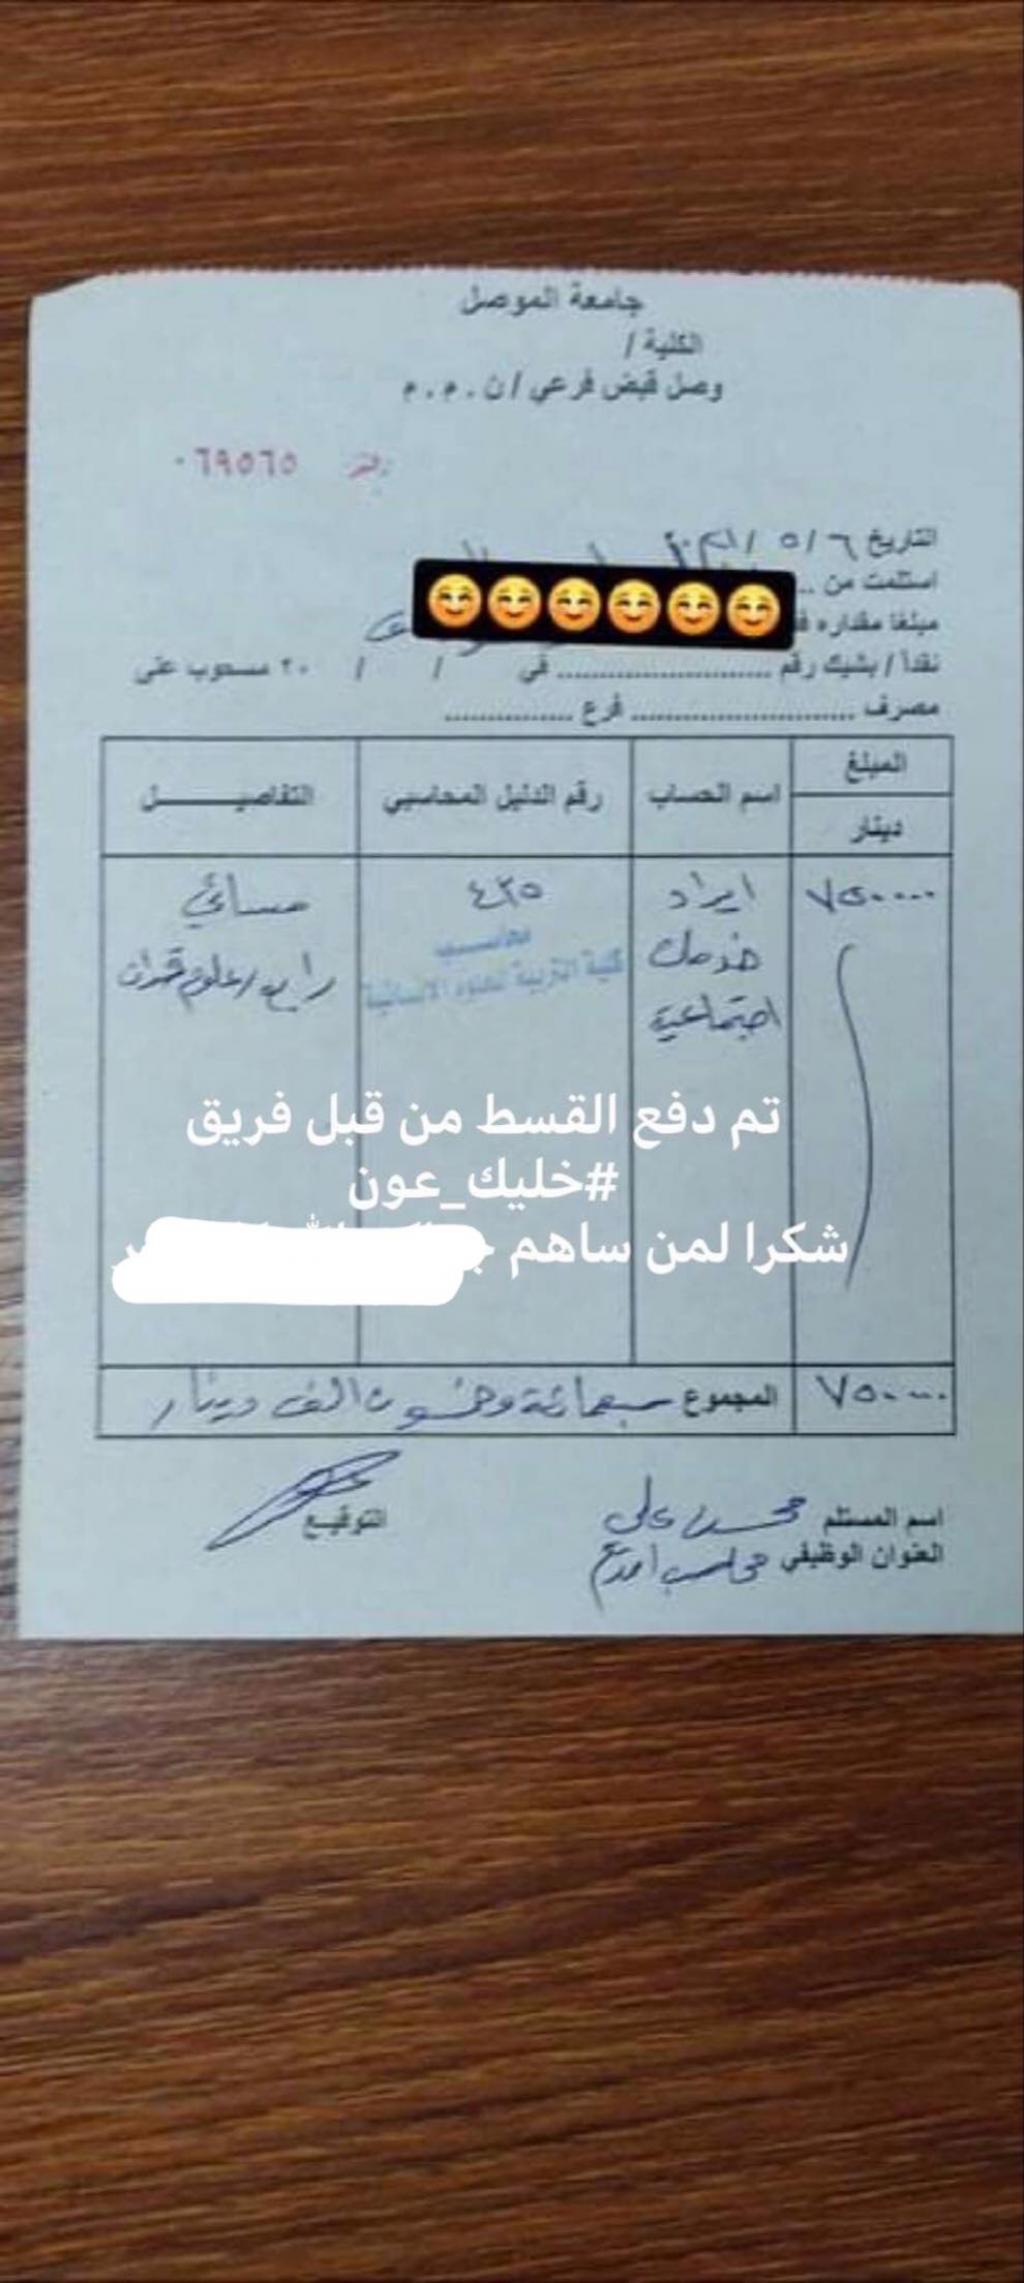 جامعة الموصل
الكلية /
وصل قبض فرعي / ن . م . م
رقم ٠٦٩٥٦٥
التاريخ ٦ / ٥ / ٢٠٢١
استلمت من ..
مبلغا مقداره
نقداً / بشيك رقم .................... في / / ٢٠ مسحوب على
مصرف .................... فرع ..............
المبلغ
دينار
اسم الحساب
رقم الدليل المحاسبي
التفاصيـــــــل
٧٥٠٠٠٠
ايراد
خدمات
اجتماعية
٤٣٥
محاسب
كلية التربية للعلوم الانسانية
مسائي
رابع / علوم قران
تم دفع القسط من قبل فريق
#خليك_عون
شكرا لمن ساهم
٧٥٠٠٠٠
المجموع سبعمائة وخمسون الف دينار
اسم المستلم محسن علي
العنوان الوظيفي محاسب
التوقيـع